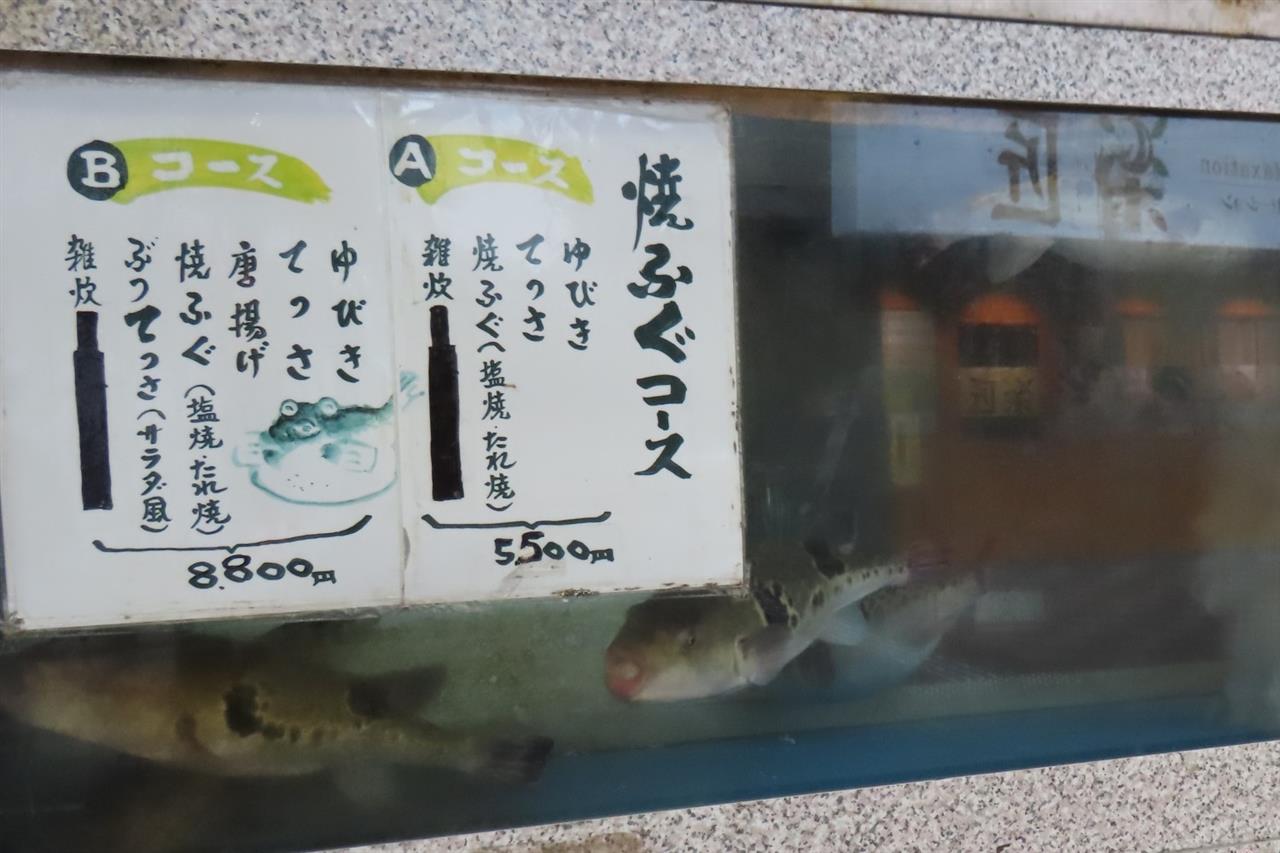 焼ふぐコース
A コース
ゆびき
てっさ
焼ふぐ(塩焼・たれ焼)
雑炊
5,500円
B コース
ゆびき
てっさ
唐揚げ
焼ふぐ(塩焼・たれ焼)
ぶつてっさ(サラダ風)
雑炊
8,800円